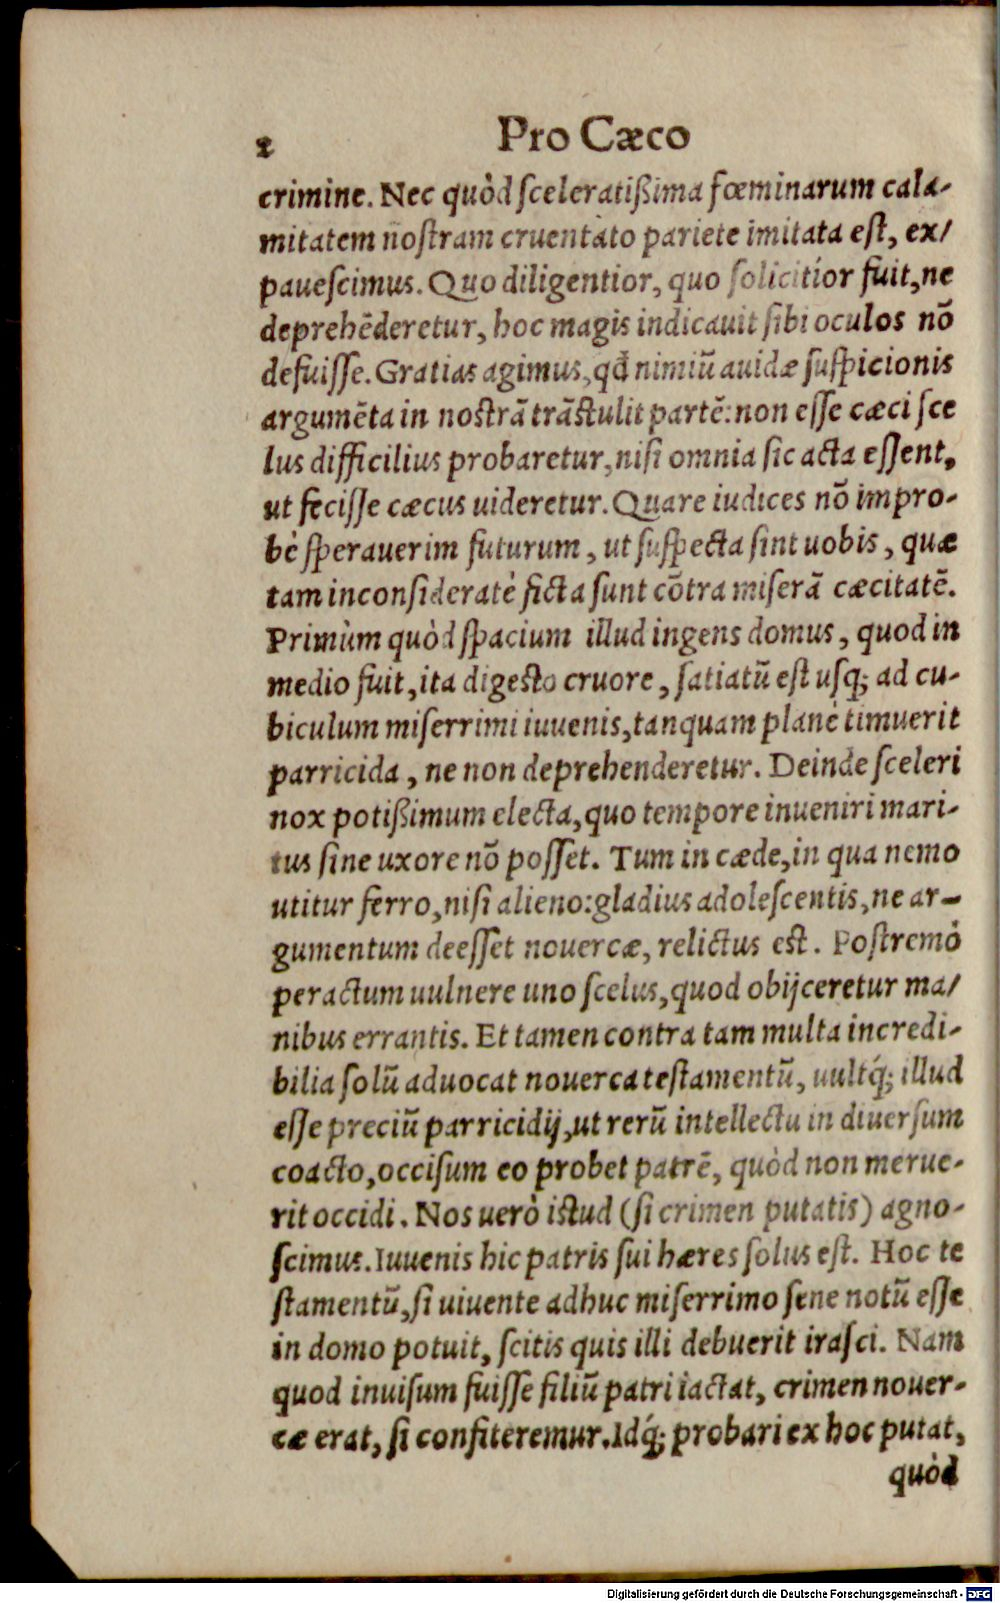 2 Pro Cæco
crimine. Nec quòd sceleratißima fœminarum cala-
mitatem nostram cruentato pariete imitata est, ex/
pauescimus. Quo diligentior, quo solicitior fuit, ne
deprehēderetur, hoc magis indicauit sibi oculos nō
defuisse. Gratias agimus, qđ nimiū auidæ suspicionis
argumēta in nostrā trāstulit partē: non esse cæci sce
lus difficilius probaretur, nisi omnia sic acta essent,
ut fecisse cæcus uideretur. Quare iudices nō impro-
bè sperauerim futurum, ut suspecta sint uobis, quæ
tam inconsideratè ficta sunt cōtra miserā cæcitatē.
Primùm quòd spacium illud ingens domus, quod in
medio fuit, ita digesto cruore, satiatū est usq; ad cu-
biculum miserrimi iuuenis, tanquam planè timuerit
parricida, ne non deprehenderetur. Deinde sceleri
nox potißimum electa, quo tempore inueniri mari-
tus sine uxore nō posset. Tum in cæde, in qua nemo
utitur ferro, nisi alieno: gladius adolescentis, ne ar-
gumentum deesset nouercæ, relictus est. Postremò
peractum uulnere uno scelus, quod obijceretur ma/
nibus errantis. Et tamen contra tam multa incredi-
bilia solū aduocat nouerca testamentū, uultq́; illud
esse preciū parricidij, ut rerū intellectu in diuersum
coacto, occisum eo probet patrē, quòd non merue-
rit occidi. Nos uerò istud (si crimen putatis) agno-
scimus. Iuuenis hic patris sui hæres solus est. Hoc te
stamentū, si uiuente adhuc miserrimo sene notū esse
in domo potuit, scitis quis illi debuerit irasci. Nam
quod inuisum fuisse filiū patri iactat, crimen nouer-
cæ erat, si confiteremur. Idq́; probari ex hoc putat,
quòd
Digitalisierung gefördert durch die Deutsche Forschungsgemeinschaft - DFG